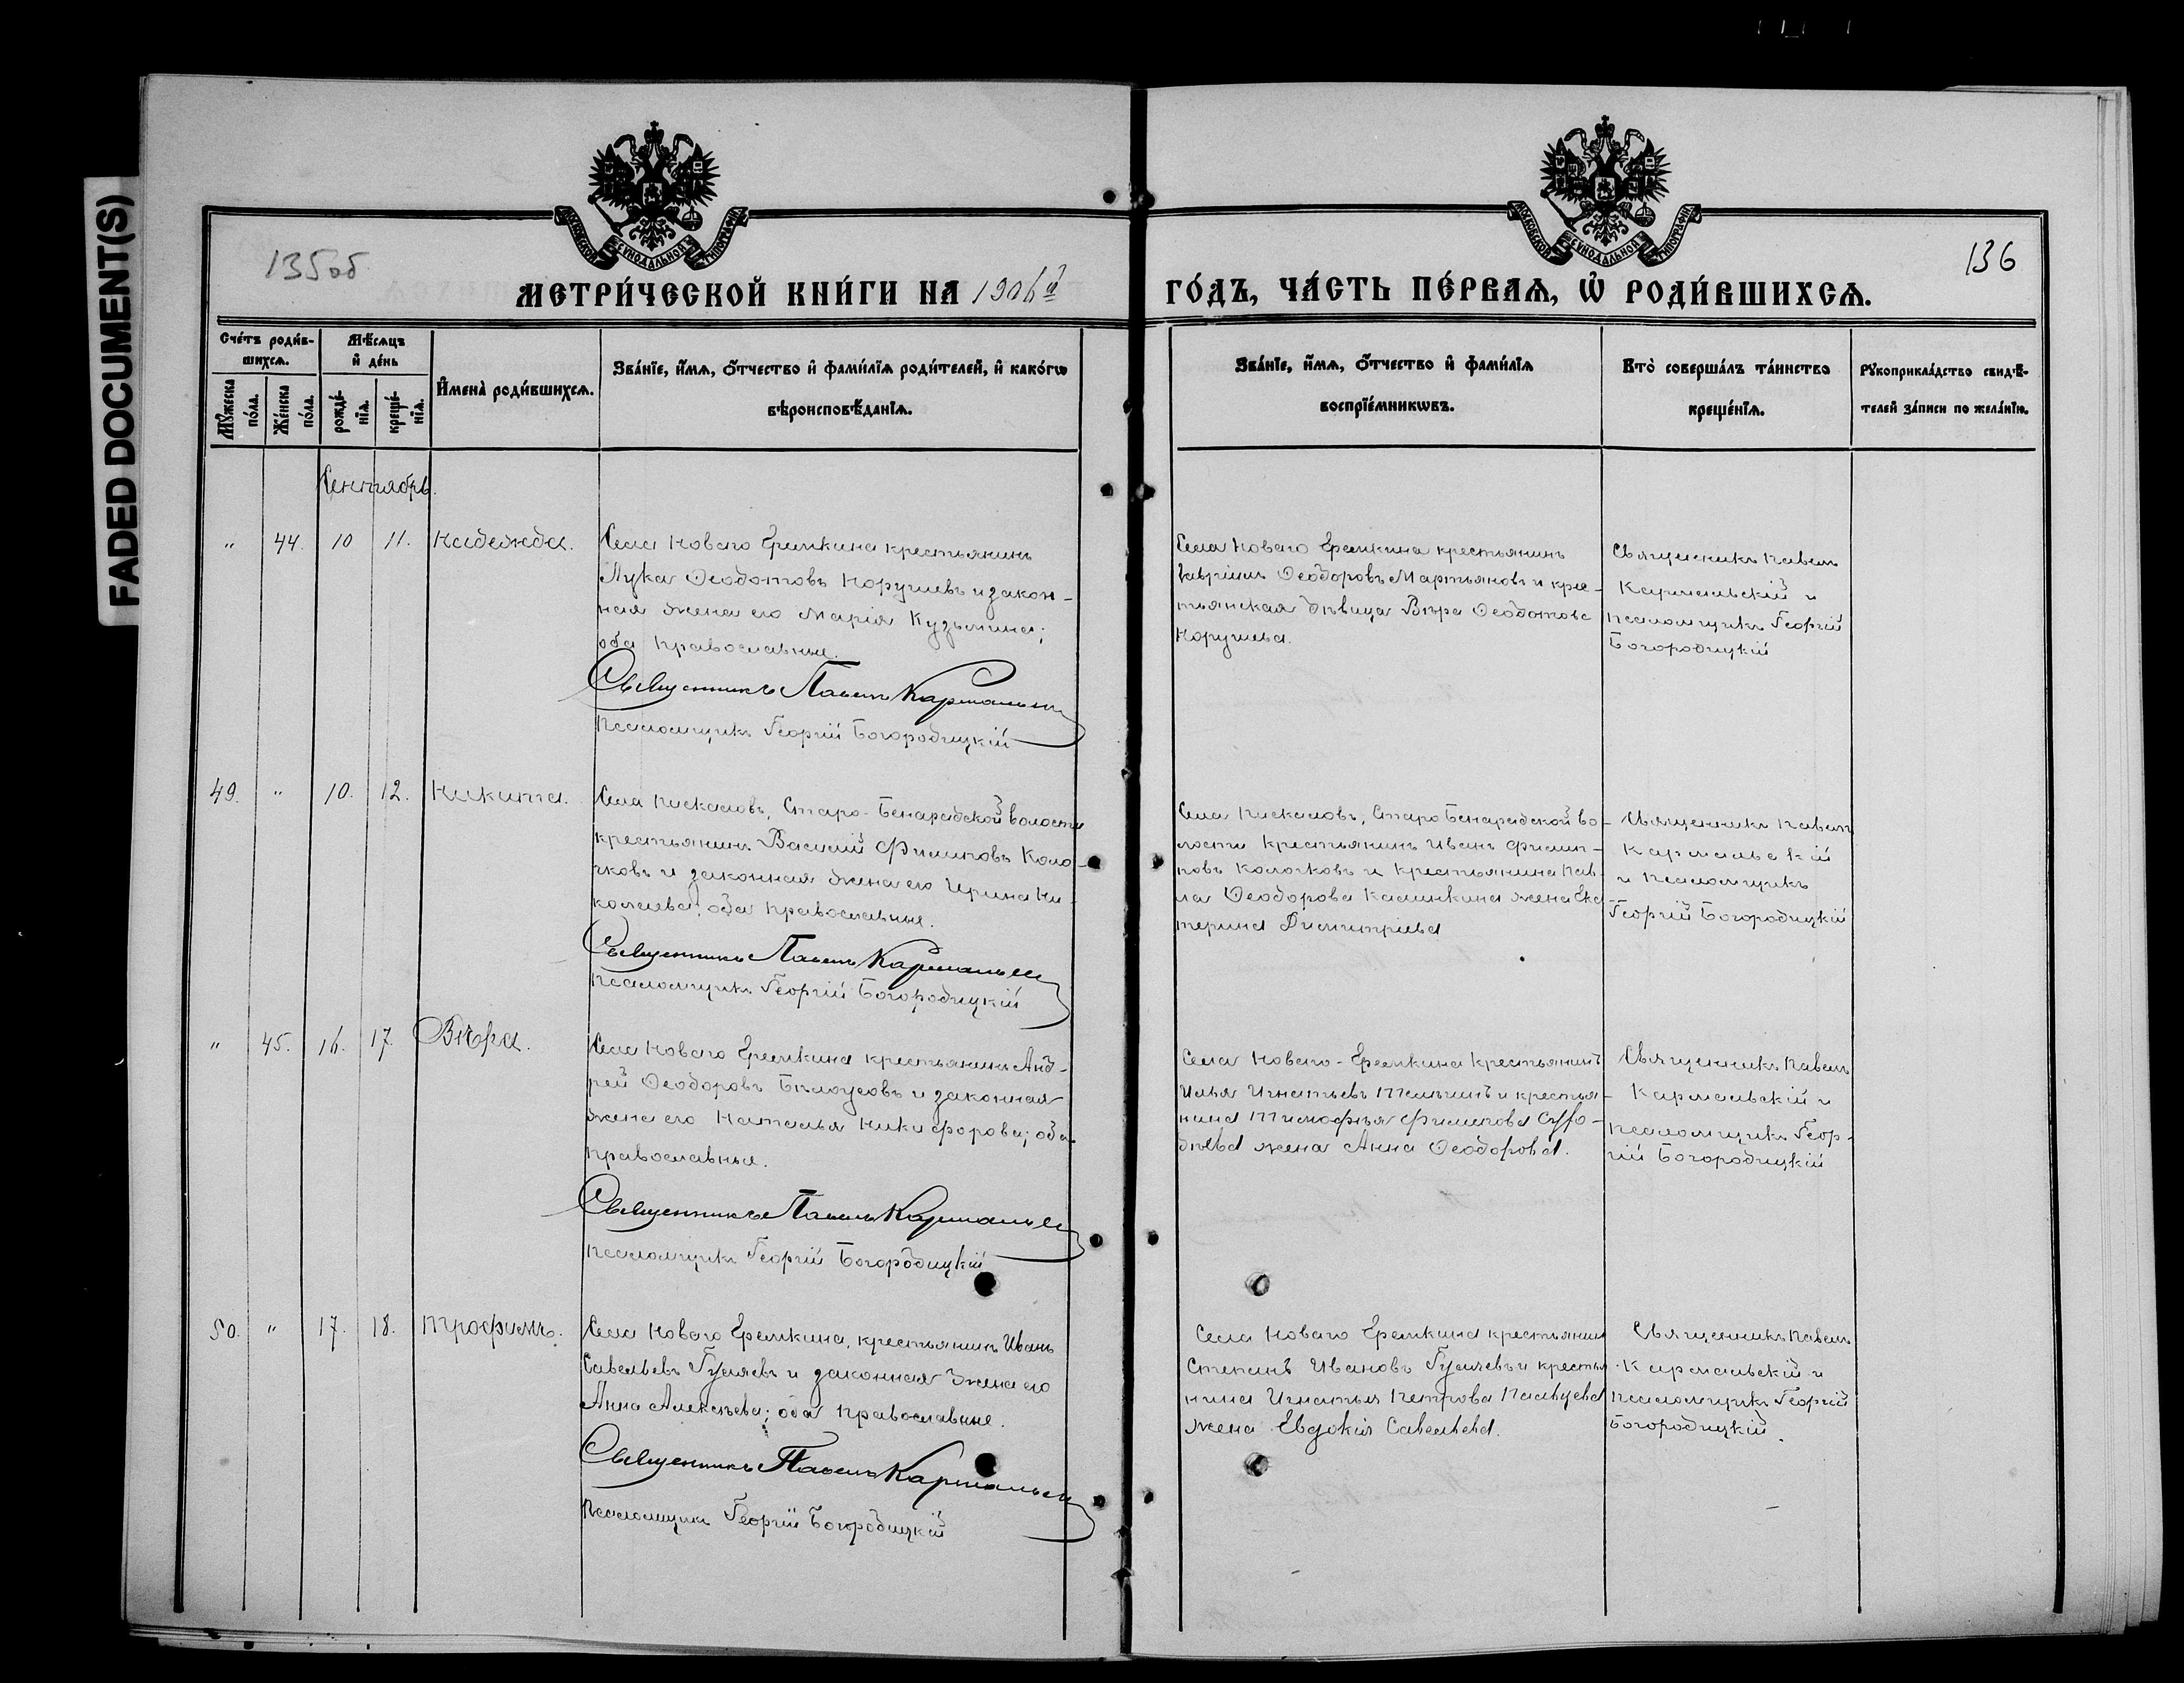 FADED DOCUMENT(S)
МОСКОВСКОЙ СѴНОДАЛЬНОЙ ТИПОГРАФІИ
МОСКОВСКОЙ СѴНОДАЛЬНОЙ ТИПОГРАФІИ
135об
136
МЕТРИ́ЧЕСКОЙ КНИ́ГИ НА 1906й
ГО́ДЪ, ЧА́СТЬ ПЕ́РВАѦ, Ѡ҆ РОДИ́ВШИХСѦ.
Сче́тъ роди́в-
шихсѧ.
Мѣ́сѧцъ
и҆ де́нь
Мꙋ́жеска
по́ла.
Же́нска
по́ла.
рожде́-
нїѧ.
креще́-
нїѧ.
И҆мена̀ роди́вшихсѧ.
Зва́нїе, и҆́мѧ, ѻ҆́тчество и҆ фами́лїѧ роди́телей, и҆ како́гѡ
вѣроисповѣ́данїѧ.
Зва́нїе, и҆́мѧ, ѻ҆́тчество и҆ фами́лїѧ
воспрїе́мникѡвъ.
Кто̀ соверша́лъ та́инство
креще́нїѧ.
Рꙋкоприкла́дство свидѣ́-
телей за́писи по жела́нїю.
Сентябрь.
" 44. 10 11. Надежда.
Села Новаго Еремкина крестьянинъ
Лука Ѳеодотовъ Норушевъ и закон-
ная жена его Марія Кузьмина;
оба православные.
Священникъ Павелъ Кармальскій
Псаломщикъ Георгій Богородицкій
Села Новаго Еремкина крестьянинъ
Гавріилъ Ѳеодоровъ Мартьяновъ и кре-
тьянская дѣвица Вѣра Ѳеодотова
Норушева.
Священникъ Павелъ
Кармальскій и
псаломщикъ Георгій
Богородицкій
49. " 10. 12. Никита.
Села Пискаловъ, Старо-Бинарадской волости
крестьянинъ Василій Филиповъ Коло-
чковъ и законная жена его Ирина Ни-
колаева; оба православные.
Священникъ Павелъ Кармальскій
Псаломщикъ Георгій Богородицкій
Села Пискаловъ, Старо Бинарадской во-
лости крестьянинъ Иванъ Филип-
повъ Колочковъ и крестьянина Пав-
ла Ѳеодорова Калинкина жена Ека
терина Димитріева
Священникъ Павелъ
Кармальскій
и Псаломщикъ
Георгій Богородицкій
" 45. 16. 17. Вѣра.
Села Новаго Еремкина крестьянинъ Анд-
рей Ѳеодоровъ Бѣлоусовъ и законная
жена его Наталья Никифорова; оба
православные.
Священникъ Павелъ Кармальскій
Псаломщикъ Георгій Богородицкій
Села Новаго-Еремкина крестьянинъ
Илья Игнатьевъ и крестья-
нина Тимофѣя Филипова
жена Анна Ѳеодорова.
Священникъ Павелъ
Кармальскій и
псаломщикъ Геор-
гій Богородицкій
50. " 17. 18. Трофимъ.
Села Новаго Еремкина, крестьянинъ Иванъ
Савельевъ Гуляевъ и законная жена его
Анна Алексѣева; оба православные.
Священникъ Павелъ Кармальскій
Псаломщикъ Георгій Богородицкій
Села Новаго Еремкина крестьянинъ
Степанъ Ивановъ Гуляевъ и крестья
нина Игнатья Петрова
жена Евдокія Савельева.
Священникъ Павелъ
Кармальскій и
псаломщикъ Георгій
Богородицкій.